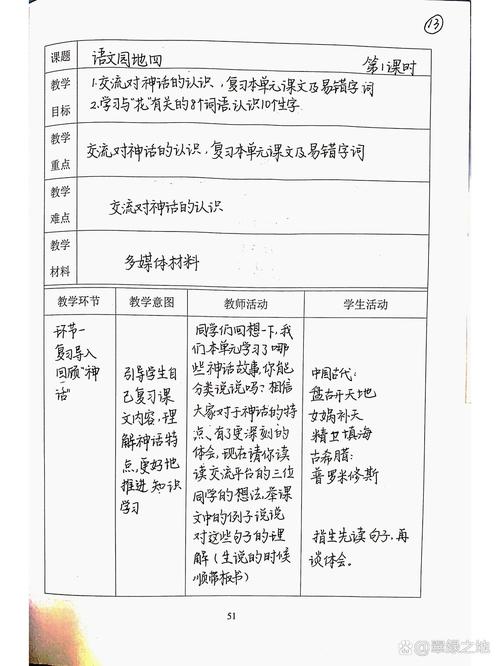 ⑬
课题 语文园地四 第1课时
教学目标 1.交流对神话的认识,复习本单元课文及易错字词
2.学习与"花"有关的8个词语,认识10个生字
教学重点 交流对神话的认识,复习本单元课文及易错字词
教学难点 交流对神话的认识
教学材料 多媒体材料
教学环节 教学意图 教师活动 学生活动
环节一
复习导入
回顾"神
话"
引导学生自
己复习课
文内容,理
解神话特
点,更好地
推进知识
学习
同学们回想一下,我
们本单元学习了哪
些神话故事,你能
分类说说吗?相信
大家对于神话的特
点、有了更深刻的
体会,现在请你读
读交流平台的三位
同学的想法,举课
文中的例子说说
对这些句子的理
解(生说的时候
顺带板书)
中国古代:
盘古开天地
女娲补天
精卫填海
古希腊:
普罗米修斯
指生先读句子,再
谈体会。
51
@翠绿之地